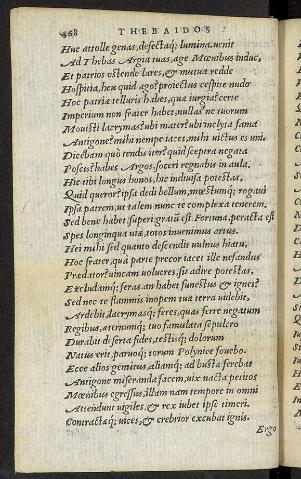 468 THEBAIDOS
Huc attolle genas, defectaq; lumina. uenit
Ad Thebas Argia tuas, age Mœnibus induc,
Et patrios ostende lares, & mutua redde
Hospitia, heu quid ago? proiectus cespite nudo
Hoc patriæ telluris habes, quæ iurgia? certe
Imperium non frater habet. nullas'ne tuorum
Mouisti lacrymas? ubi mater? ubi inclyta fama
Antigone? mihi nempe iaces, mihi uictus es uni.
Dicebam quò tendis iter? quid sceptra negata
Poscis? habes Argos, soceri regnabis in aula.
Hic tibi longus honos, hic indiuisa potestas,
Quid queror? ipsa dedi bellum, mœstumq; rogaui
Ipsa patrem, ut talem nunc te complexa tenerem.
Sed bene habet superi gratū est. Fortuna, peracta est
Spes longinqua uiæ, totos inuenimus artus.
Hei mihi sed quanto descendit uulnus hiatu,
Hoc frater, qua parte precor iacet ille nefandus
Prædator? uincam uolucres, sit adire potestas,
Excludamq; feras. an habet funestus & ignes?
Sed nec te flammis inopem tua terra uidebit,
Ardebis, lacrymasq; feres, quas ferre negatum
Regibus, æternumq; tuo famulata sepulcro
Durabit deserta fides, testisq; dolorum
Natus erit, paruoq; torum Polynice fouebo.
Ecce alios gemitus, aliamq; ad busta ferebat
Antigone miseranda facem, uix nacta petitos
Mœnibus egressus, illam nam tempore in omni
Attendunt uigiles, & rex iubet ipse timeri.
Contractæq; uices, & crebrior excubat ignis.
Ergo